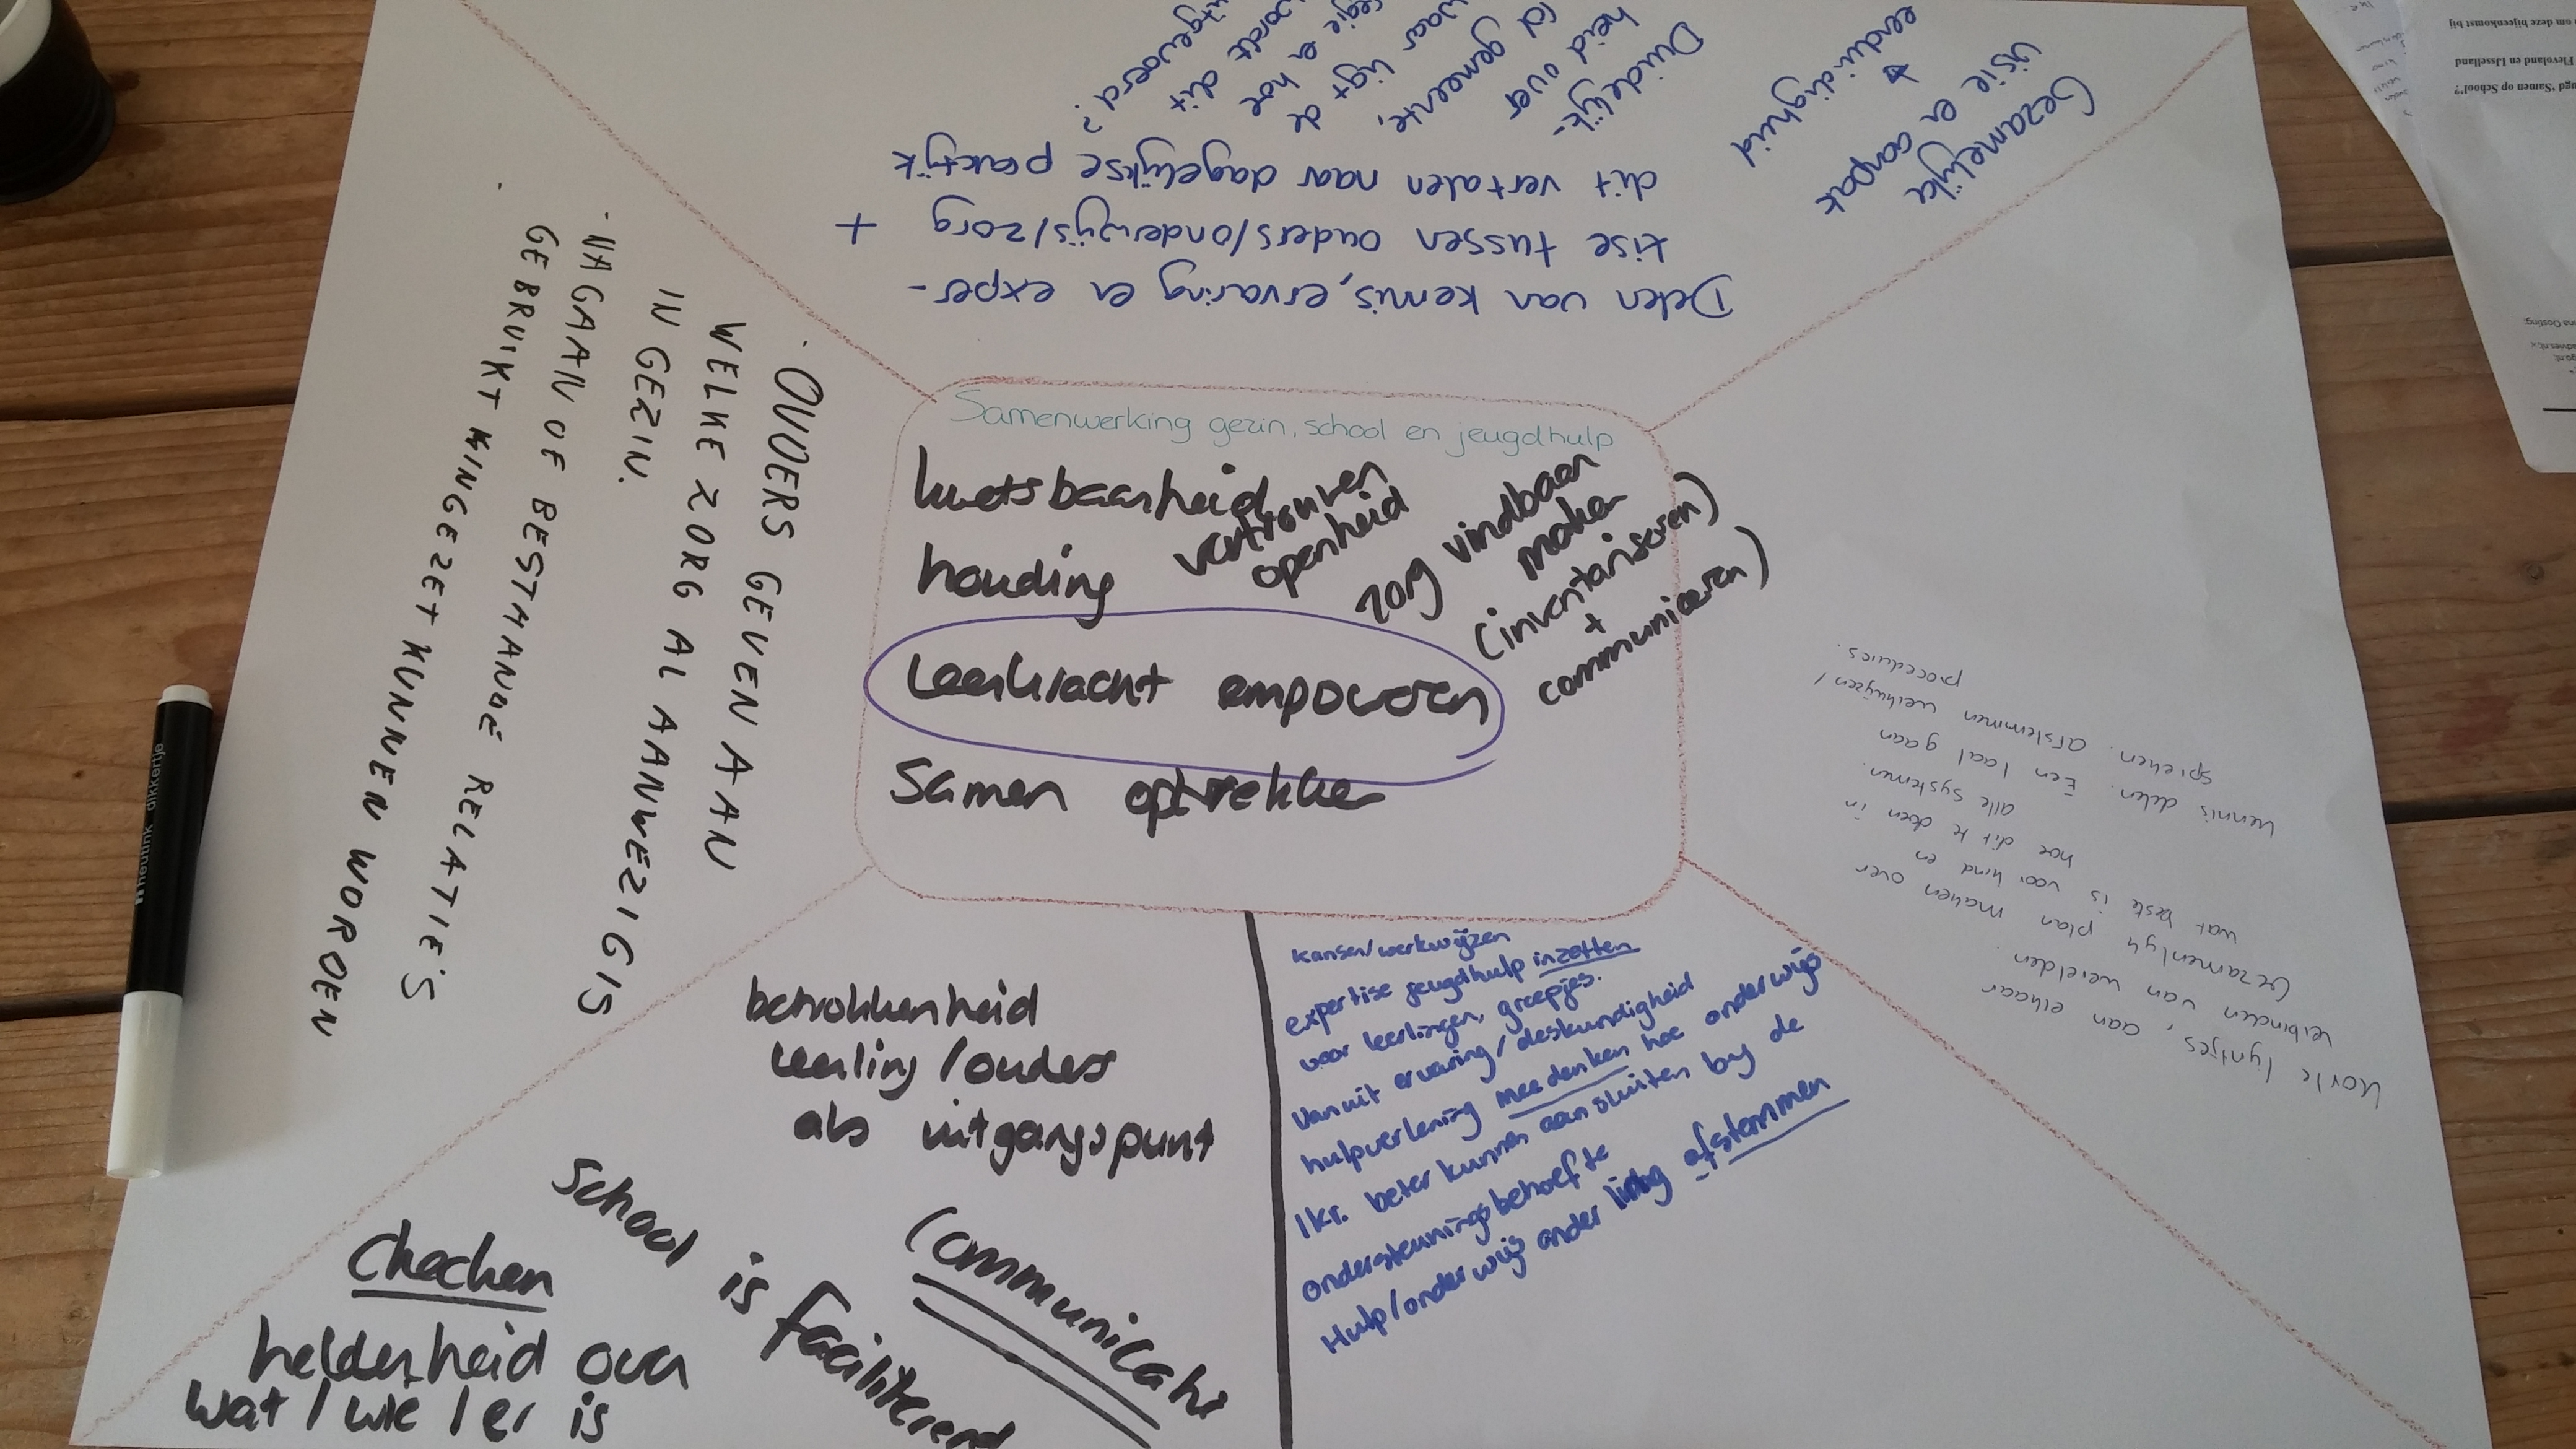 Samenwerking gezin, school en jeugdhulp
kwetsbaarheid
houding
vertrouwen
openheid
zorg vindbaar
maken
(inventariseren)
+
communiceren)
leerkracht empoweren
Samen optrekken
Delen van kennis, ervaring en exper-
tise tussen ouders/onderwijs/zorg +
dit vertalen naar dagelijkse praktijk
Duidelijk-
heid over
gemeente,
waar ligt de
regie en hoe
wordt dit
uitgevoerd?
Gezamelijke
visie en aanpak
eenduidigheid
· OUDERS GEVEN AAN
WELKE ZORG AL AANWEZIG IS
IN GEZIN.
· NAGAAN OF BESTAANDE RELATIE'S
GEBRUIKT KINGEZET KUNNEN WORDEN
Korte lyntjes, aan elkaar
verbinden van werelden.
Gezamenlyk plan maken over
wat beste is voor kind en
hoe dit te doen in
alle systemen.
kennis delen. Een taal gaan
spreken. afstemmen werkwijzen/
procedures.
betrokkenheid
leerling/ouders
als uitgangspunt
School is faciliterend
Communicatie
Checken
helderheid over
wat / wie / er is
Kansen/werkwijzen
expertise jeugdhulp inzetten
voor leerlingen, groepjes.
Vanuit ervaring/deskundigheid
hulpverlening meedenken hoe onderwijs
lkr. beter kunnen aansluiten bij de
ondersteuningsbehoefte
Hulp/onderwijs onderling afstemmen
heutink dikkertje
om deze bijeenkomst bij
Flevoland en IJsselland
'Samen op School'?